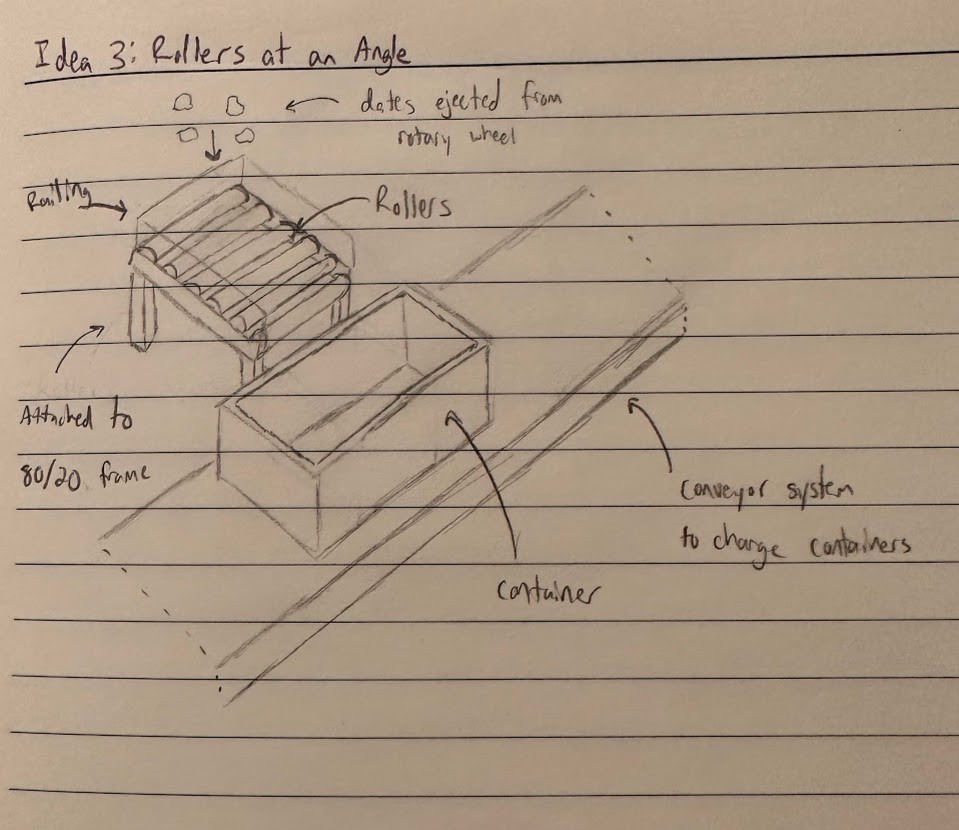 Idea 3: Rollers at an Angle
dates ejected from
rotary wheel
Railing
Rollers
Attached to
80/20 frame
conveyor system
to change containers
container